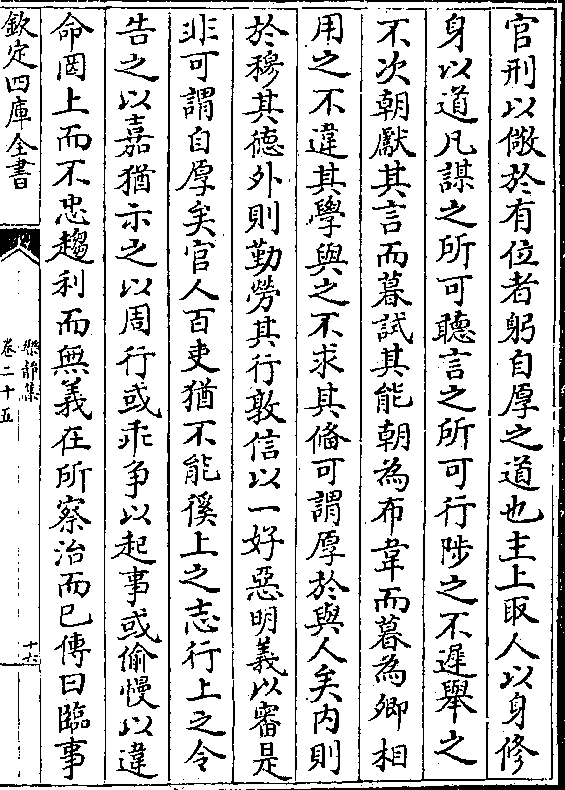 官刑以儆於有位者躬自厚之道也主上取人以身修
身以道凡謀之所可聽言之所可行陟之不遲舉之
不次朝獻其言而暮試其能朝為布韋而暮為卿相
用之不違其學與之不求其偹可謂厚於與人矣内則
於穆其德外則勤勞其行敦信以一好惡明義以審是
非可謂自厚矣官人百吏猶不能徯上之志行上之令
告之以嘉猶示之以周行或乖爭以起事或偷慢以違
命罔上而不忠趨利而無義在所察治而已傳曰臨事
欽定四庫全書
樂靜集
卷二十五
十六